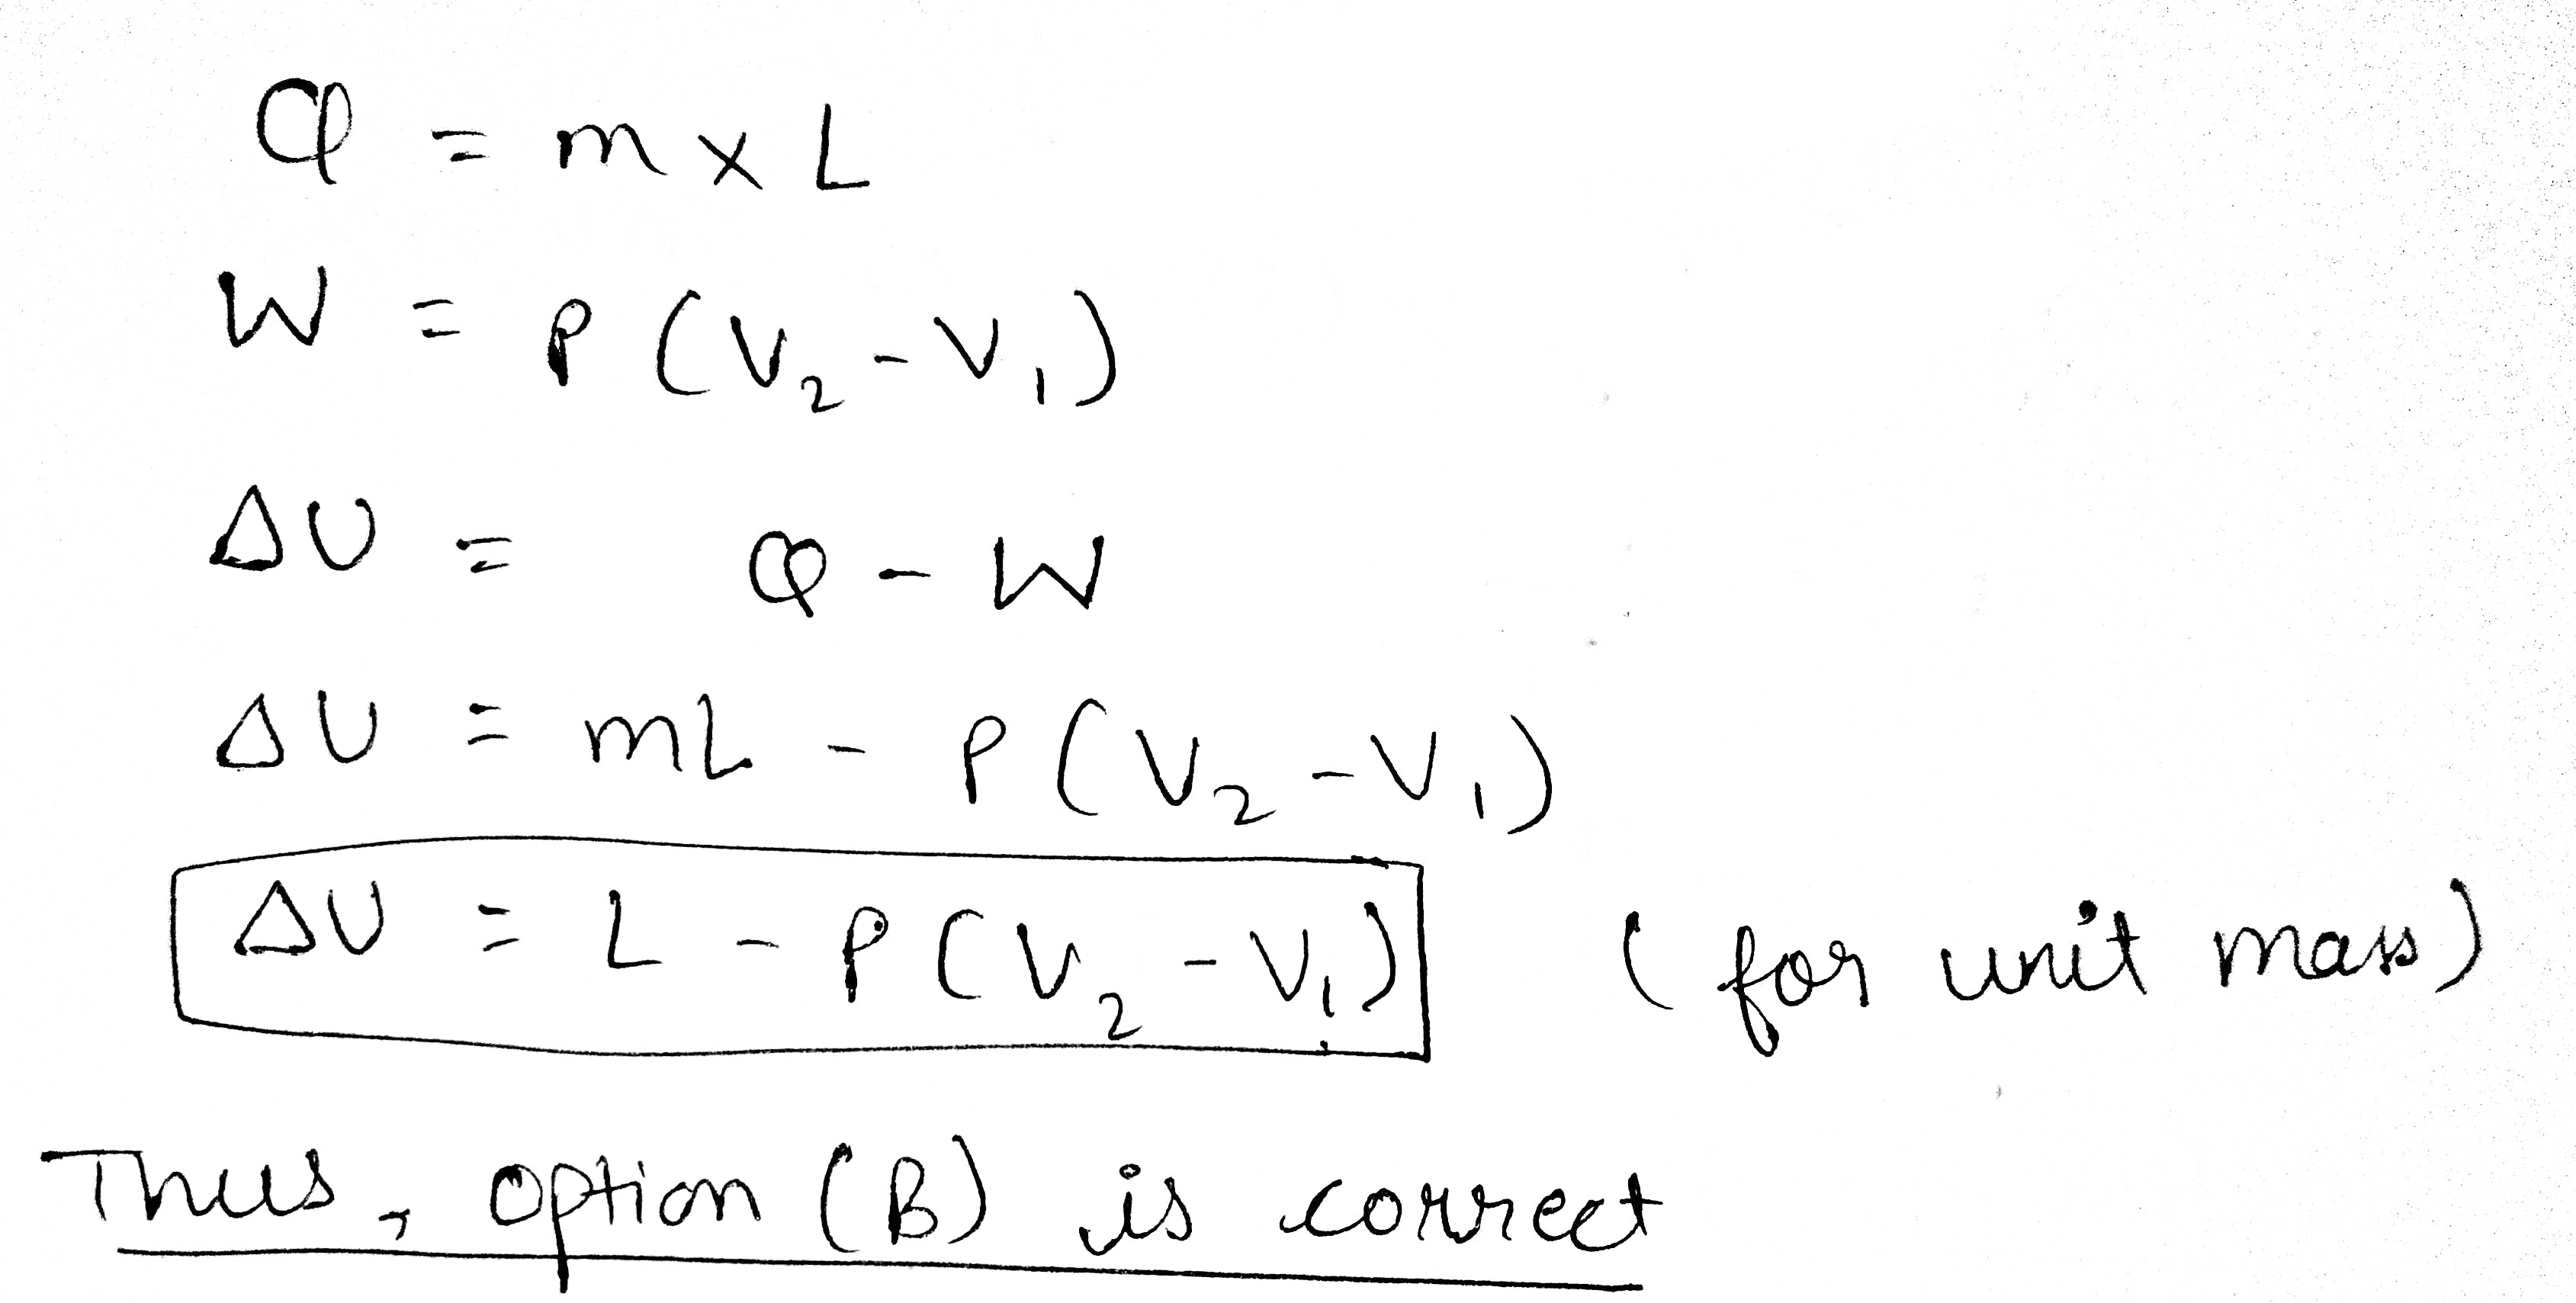 Q = m x L
W = P (V₂ - V₁)
ΔU = Q - W
ΔU = mL - P (V₂ - V₁)
ΔU = L - P (V₂ - V₁) (for unit mass)
Thus, option (B) is correct